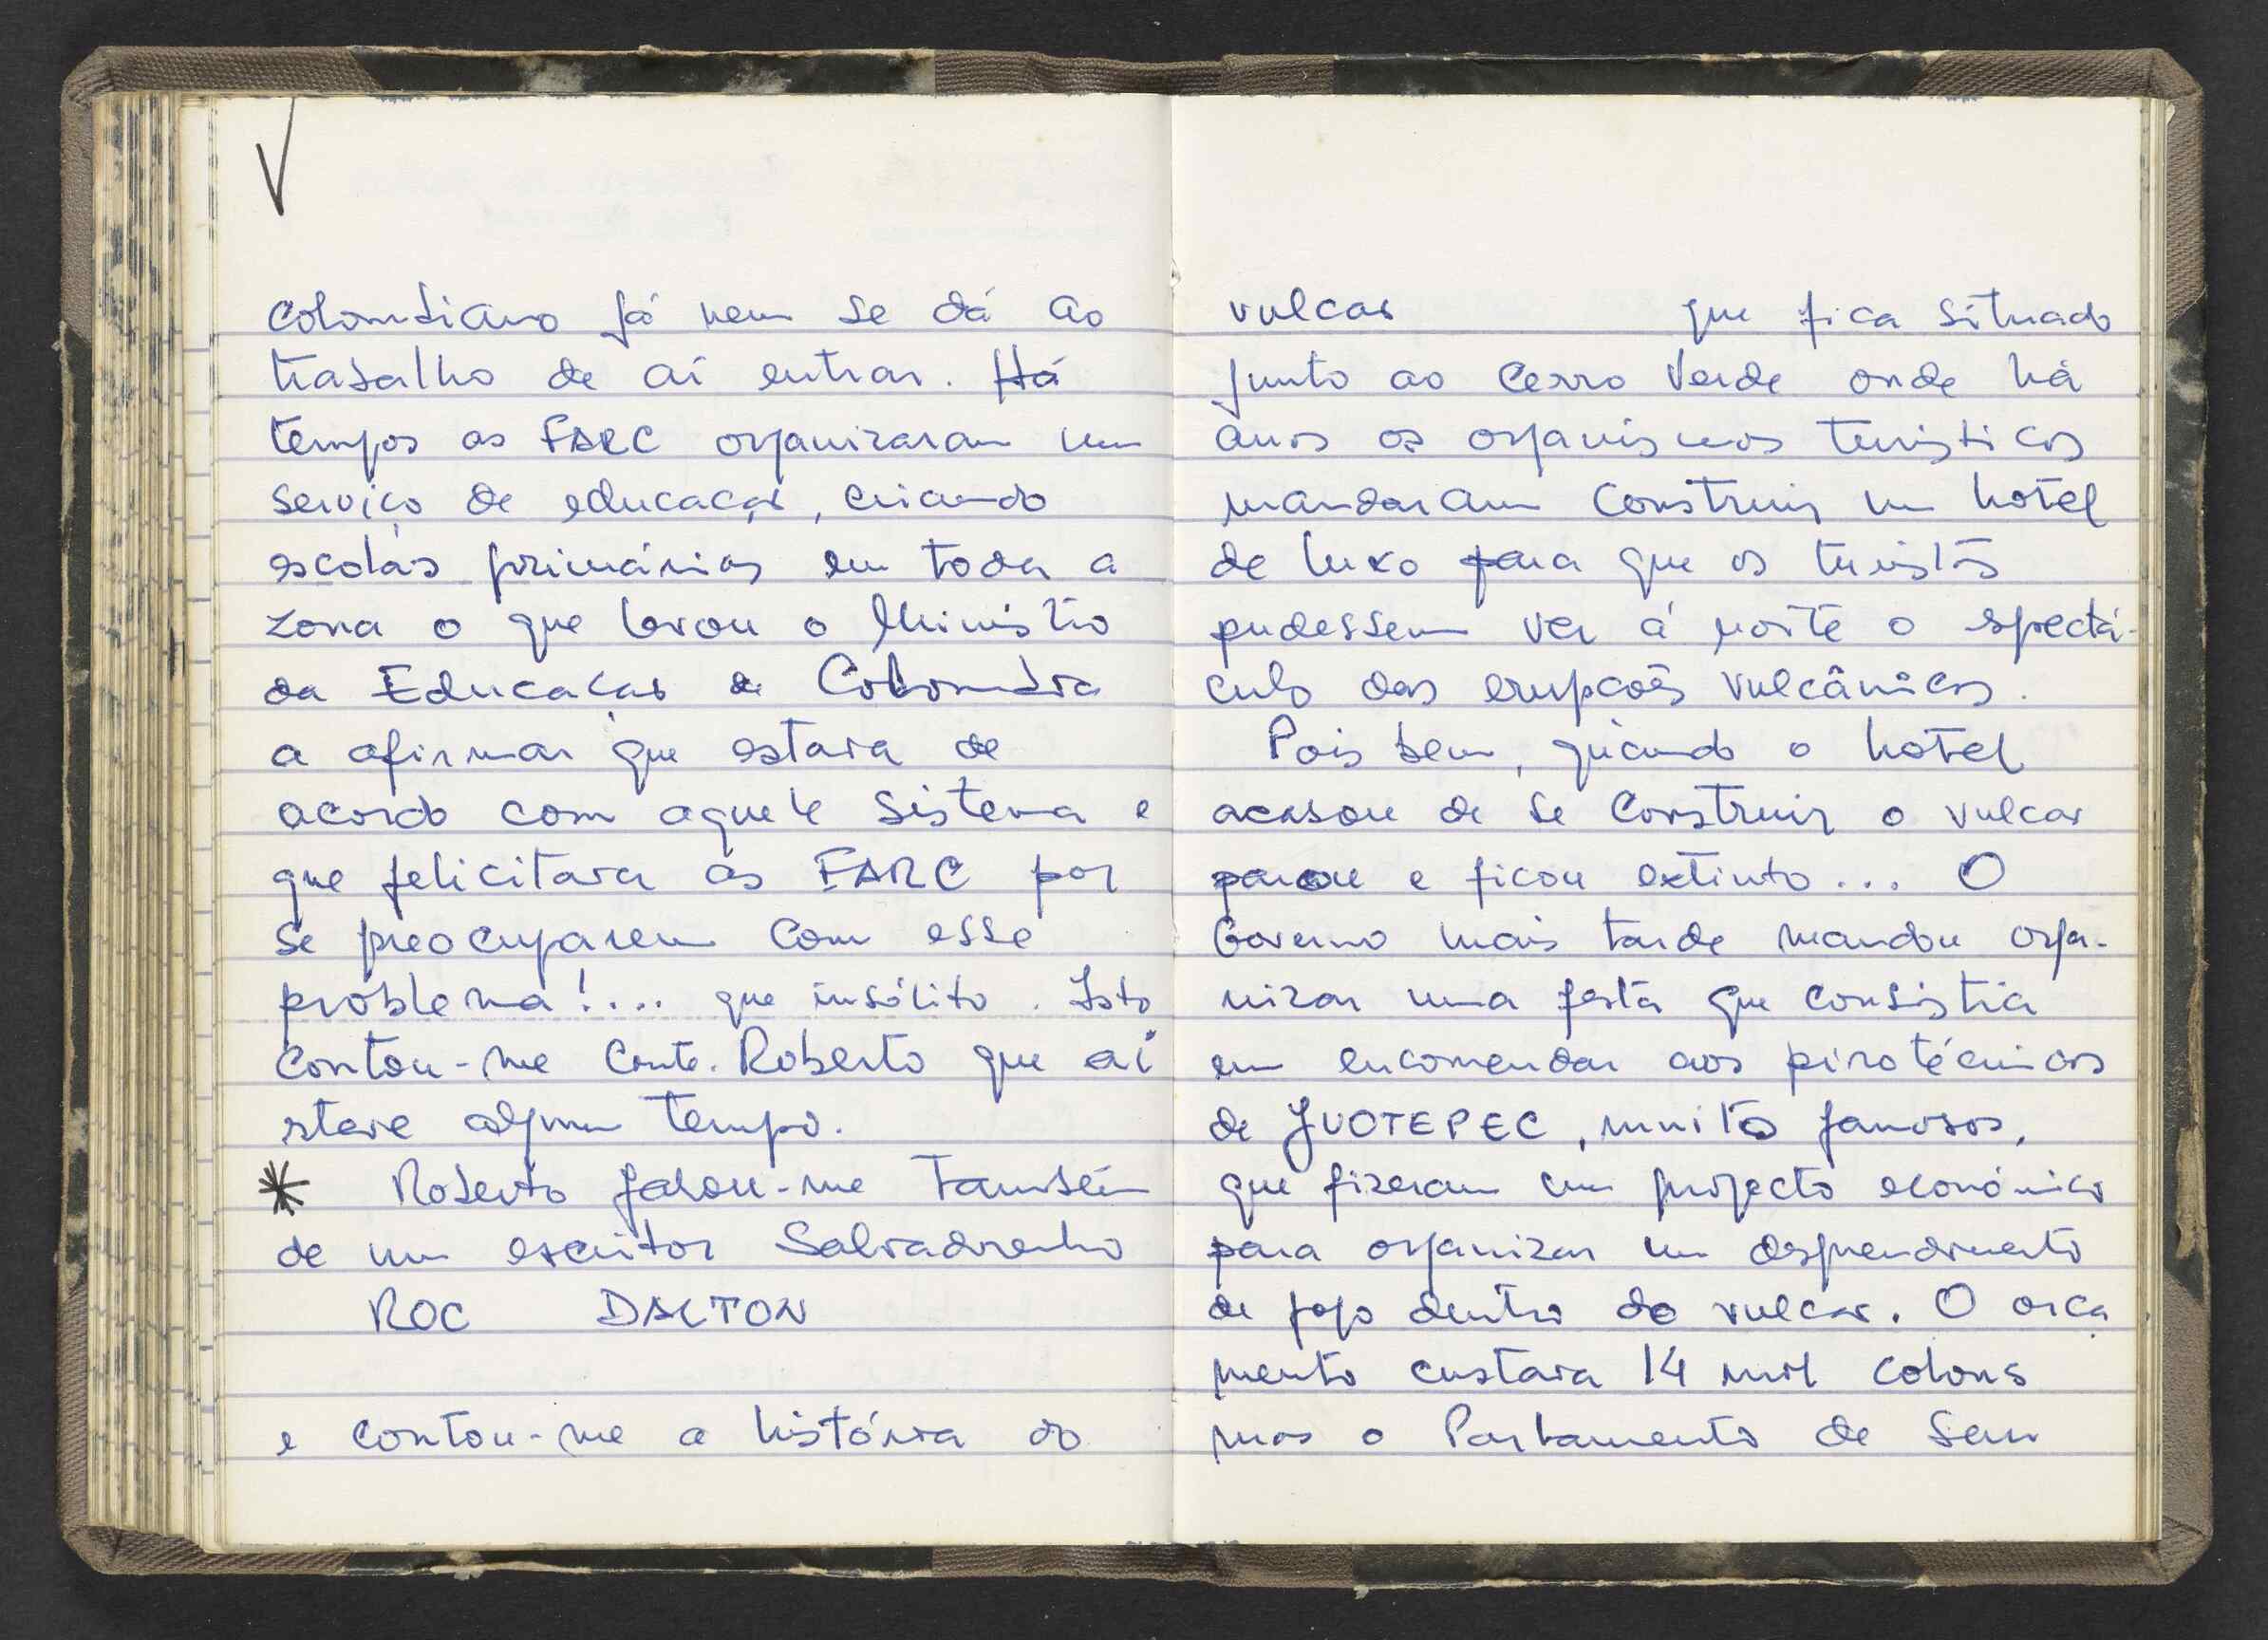 colombiano já nem se dá ao
trabalho de aí entrar. Há
tempos as FARC organizaram um
serviço de educação, criando
escolas primárias em toda a
zona o que levou o Ministro
da Educação da Colombia
a afirmar que estava de
acordo com aquele sistema e
que felicitava as FARC por
se preocuparem com esse
problema!.... que insólito. Isto
contou-me Cmte. Roberto que aí
steve algum tempo.
* Roberto falou-me também
de um escritor Salvadorenho
ROC DALTON
e contou-me a história do
vulcão que fica situado
junto ao Cerro Verde onde há
anos os organismos turisticos
mandaram construir um hotel
de luxo para que os turistas
pudessem ver à noite o spectá-
culo das erupções vulcânicas.
Pois bem, quando o hotel
acabou de se construir o vulcão
parou e ficou extinto... O
Governo mais tarde mandou orga-
nizar uma festa que consistia
em encomendar aos pirotécnicos
de JUOTEPEC, muito famosos,
que fizeram um projecto económico
para organizar um desprendimento
de fogo dentro do vulcão. O orça
mento custava 14 mil colons
mas o Parlamento de San